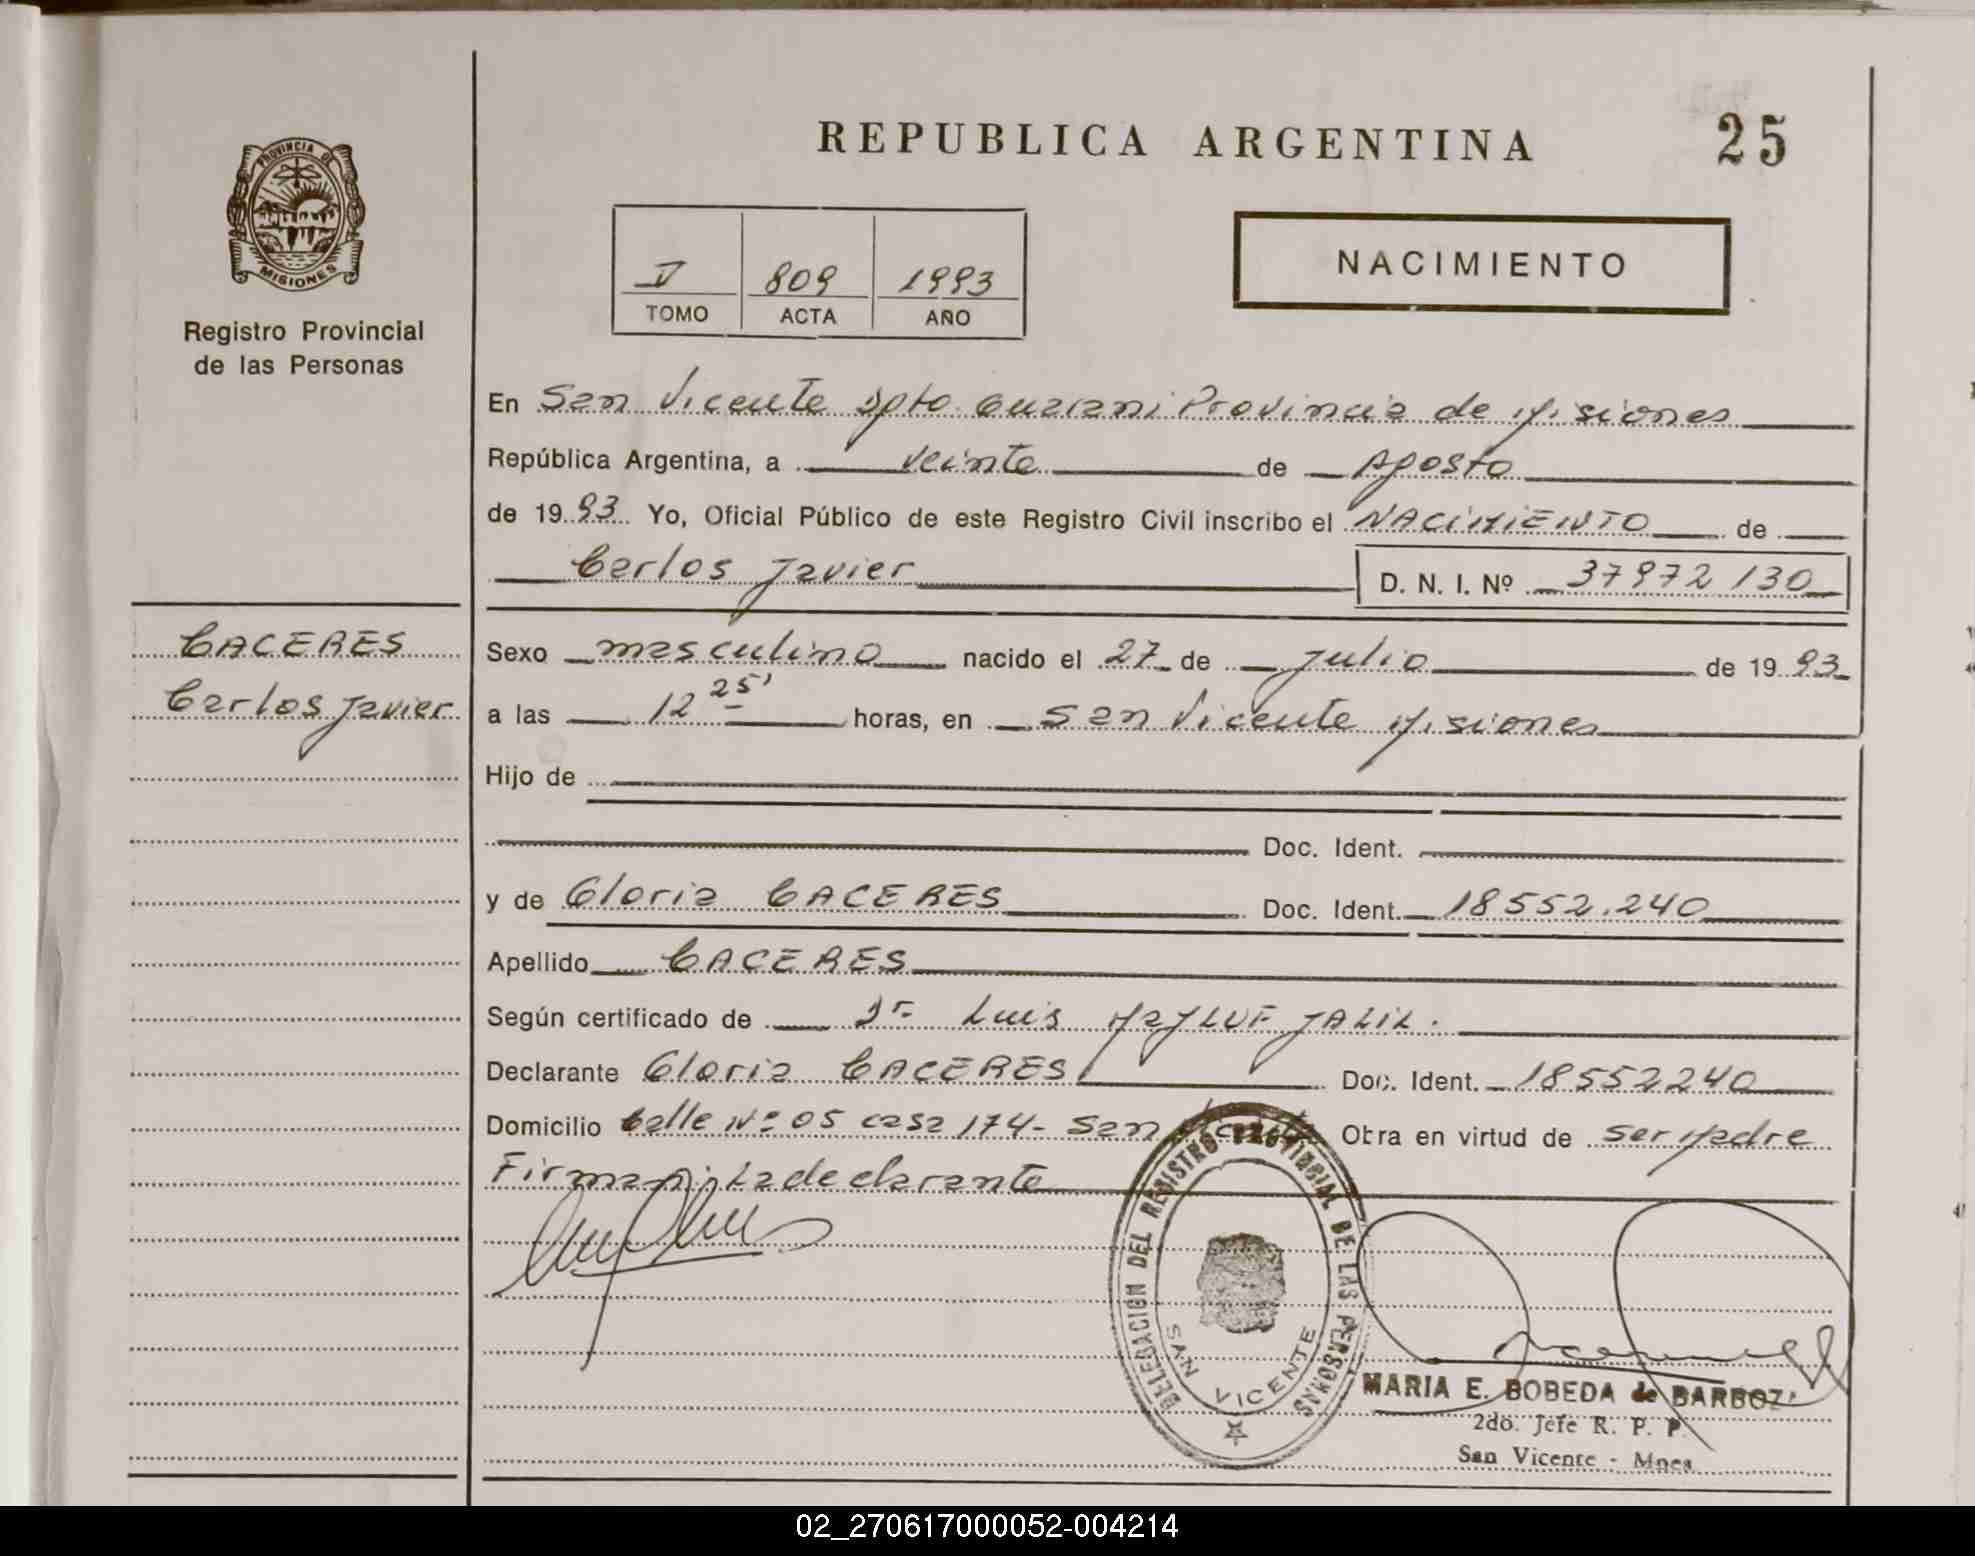 REPUBLICA ARGENTINA
25
PROVINCIA DE
MISIONES
Registro Provincial
de las Personas
809 1993
TOMO ACTA AÑO
NACIMIENTO
En San Vicente Dpto. Guarani Provincia de Misiones
República Argentina, a veinte de Agosto
de 1993 Yo, Oficial Público de este Registro Civil inscribo el NACIMIENTO de
Carlos Javier D. N. I. Nº 37972130
CACERES
Carlos Javier
Sexo masculino nacido el 27 de Julio de 1993
a las 12 25' horas, en San Vicente Misiones
Hijo de
Doc. Ident.
y de Gloria CACERES Doc. Ident. 18552.240
Apellido CACERES
Según certificado de Dr Luis JALIL.
Declarante Gloria CACERES Doc. Ident. 18552240
Domicilio Calle Nº 05 casa 174- San Vicente Obra en virtud de ser Madre
Firman: La declarante
DELEGACION DEL REGISTRO PROVINCIAL DE LAS PERSONAS
SAN VICENTE
MARIA E. BOBEDA de BARBOZA
2do. Jefe R. P. P.
San Vicente - Mnes.
02_270617000052-004214